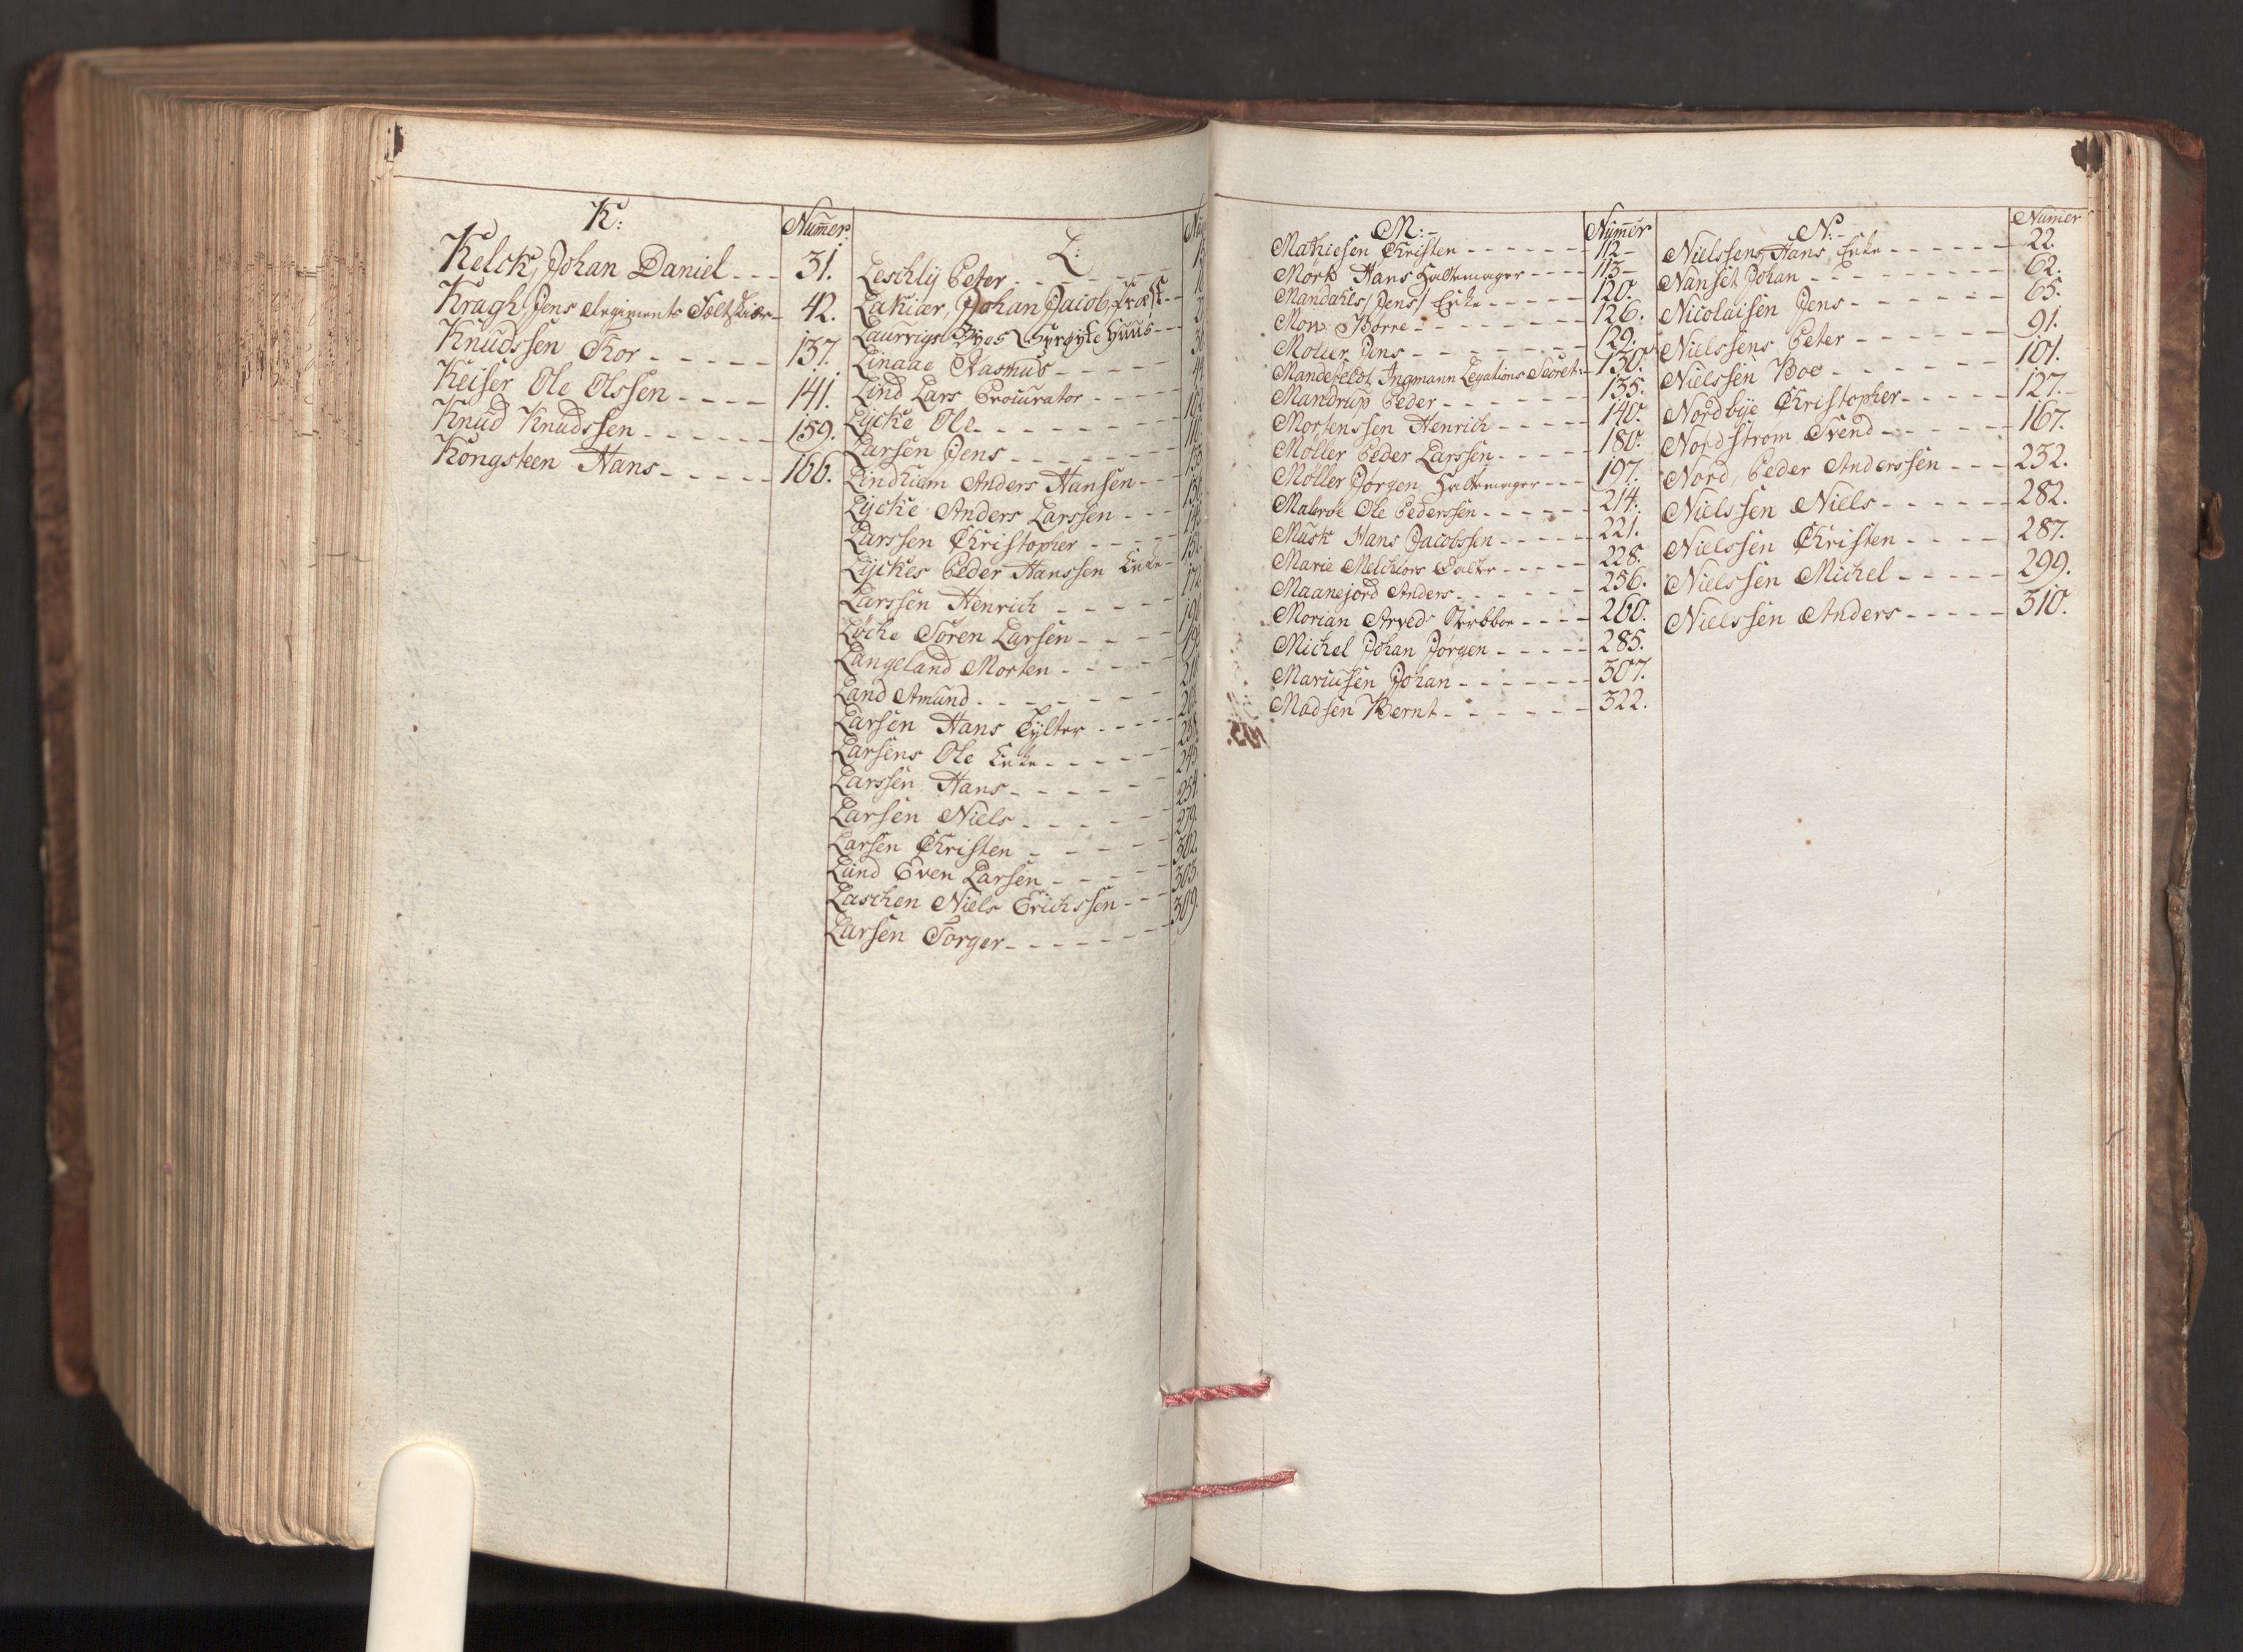 K:
Numer:
Kelck, Johan Daniel - - - 31.
Kragh, Jens Regiments Feltskiær - 42.
Knudssen Kor - - - - - 137.
Keiser Ole Olssen - - - - 141.
Knud Knudssen - - - - - - 159.
Kongsteen Hans - - - - - 166.
L:
Leschlij Peter - - - - -
Lakiær, Johan Jacob, Præst - -
Laurvigs Byes Sprøyte Huus - - -
Linaae Rasmus - - - - -
Lind Lars Procurator - - - -
Lycke Ole - - - - - - -
Larsen Jens - - - - - - -
Lindhiem Anders Hansen - - -
Lycke Anders Larssen - - -
Larssen Christopher - - - -
Lyckes Peder Hanssen Enke -
Larssen Henrich - - - - -
Løcke Søren Larsen - - - -
Langeland Morten - - - - -
Land Amund - - - - - - -
Larsen Hans Tylter - - - - -
Larsens Ole Enke - - - - -
Larssen Hans - - - - - 245
Larsen Niels - - - - - 254.
Larsen Christen - - - - - 279.
Lund Even Larsen - - - - 302.
Laschen Niels Erichssen - - - 303.
Larsen Torger - - - - - - - 309.
M:-
Numer
Mathiesen Christen - - - - - - 112-
Mørk Hans Hattemager - - - - 113-
Mandahls /Jens/ Enke - - - - - 120.
Mow Børre - - - - - - - - 126.
Møller Jens - - - - - - - 129.
Mandefeldt Ingmann Legations Secret: - 130.
Mandrup Peder - - - - - - - 135.
Mortenssen Henrich - - - - - 140.
Møller Peder Larssen - - - - - 180.
Møller Jørgen Hattemager - - - 197.
Malerøe Ole Pederssen - - - - - - 214.
Musk Hans Jacobssen - - - - - 221.
Marie Melchiors Datter - - - - - 228.
Maanejord Anders - - - - - - - 256.
Morian Arved - - - - 260.
Michel Johan Jørgen - - - - - 285.
Mariusen Johan - - - - - - - 307.
Madsen Bernt - - - - - - - 322.
N:-
Numer
Nielssens, Hans, Enke - - - - - - 22.
Nanset Johan - - - - - - - - - 62.
Nicolaisen Jens - - - - - - - 65.
Nielssens Peter - - - - - - 91.
Nielssen Boe - - - - - - - 101.
Nordbye Christopher - - - - - 127.-
Nordstrøm Svend - - - - - - 167.
Nord, Peder Anderssen - - - 232.
Nielssen Niels - - - - - - 282.
Nielssen Christen - - - - 287.
Nielssen Michel - - - - - 299.
Nielssen Anders - - - - - 310.